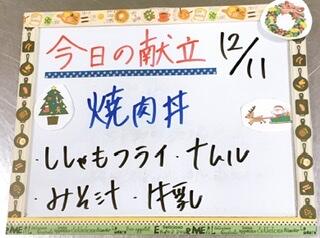 今日の献立 12/11
焼肉丼
・ししゃもフライ ・ナムル
・みそ汁 ・牛乳